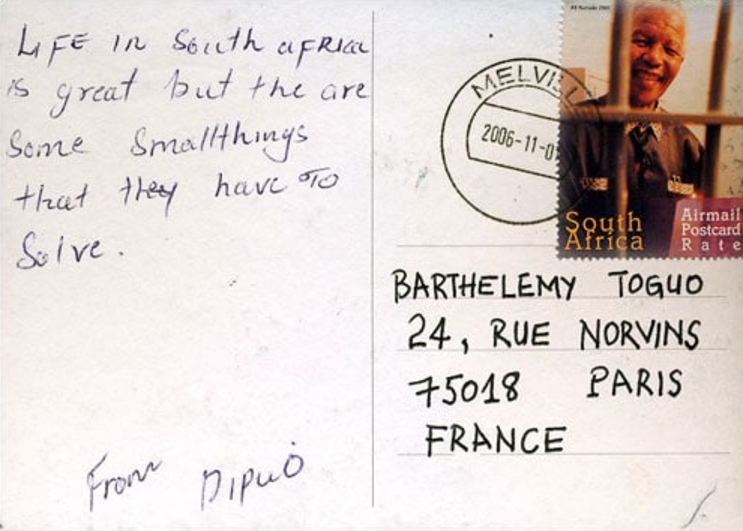 LIFE IN South AFRICA
is great but the are
Some Smallthings
that they have TO
Solve.
From Dipuo
MELVILL
2006-11-01
South
Africa
Airmail
Postcard
Rate
BARTHELEMY TOGUO
24, RUE NORVINS
75018 PARIS
FRANCE